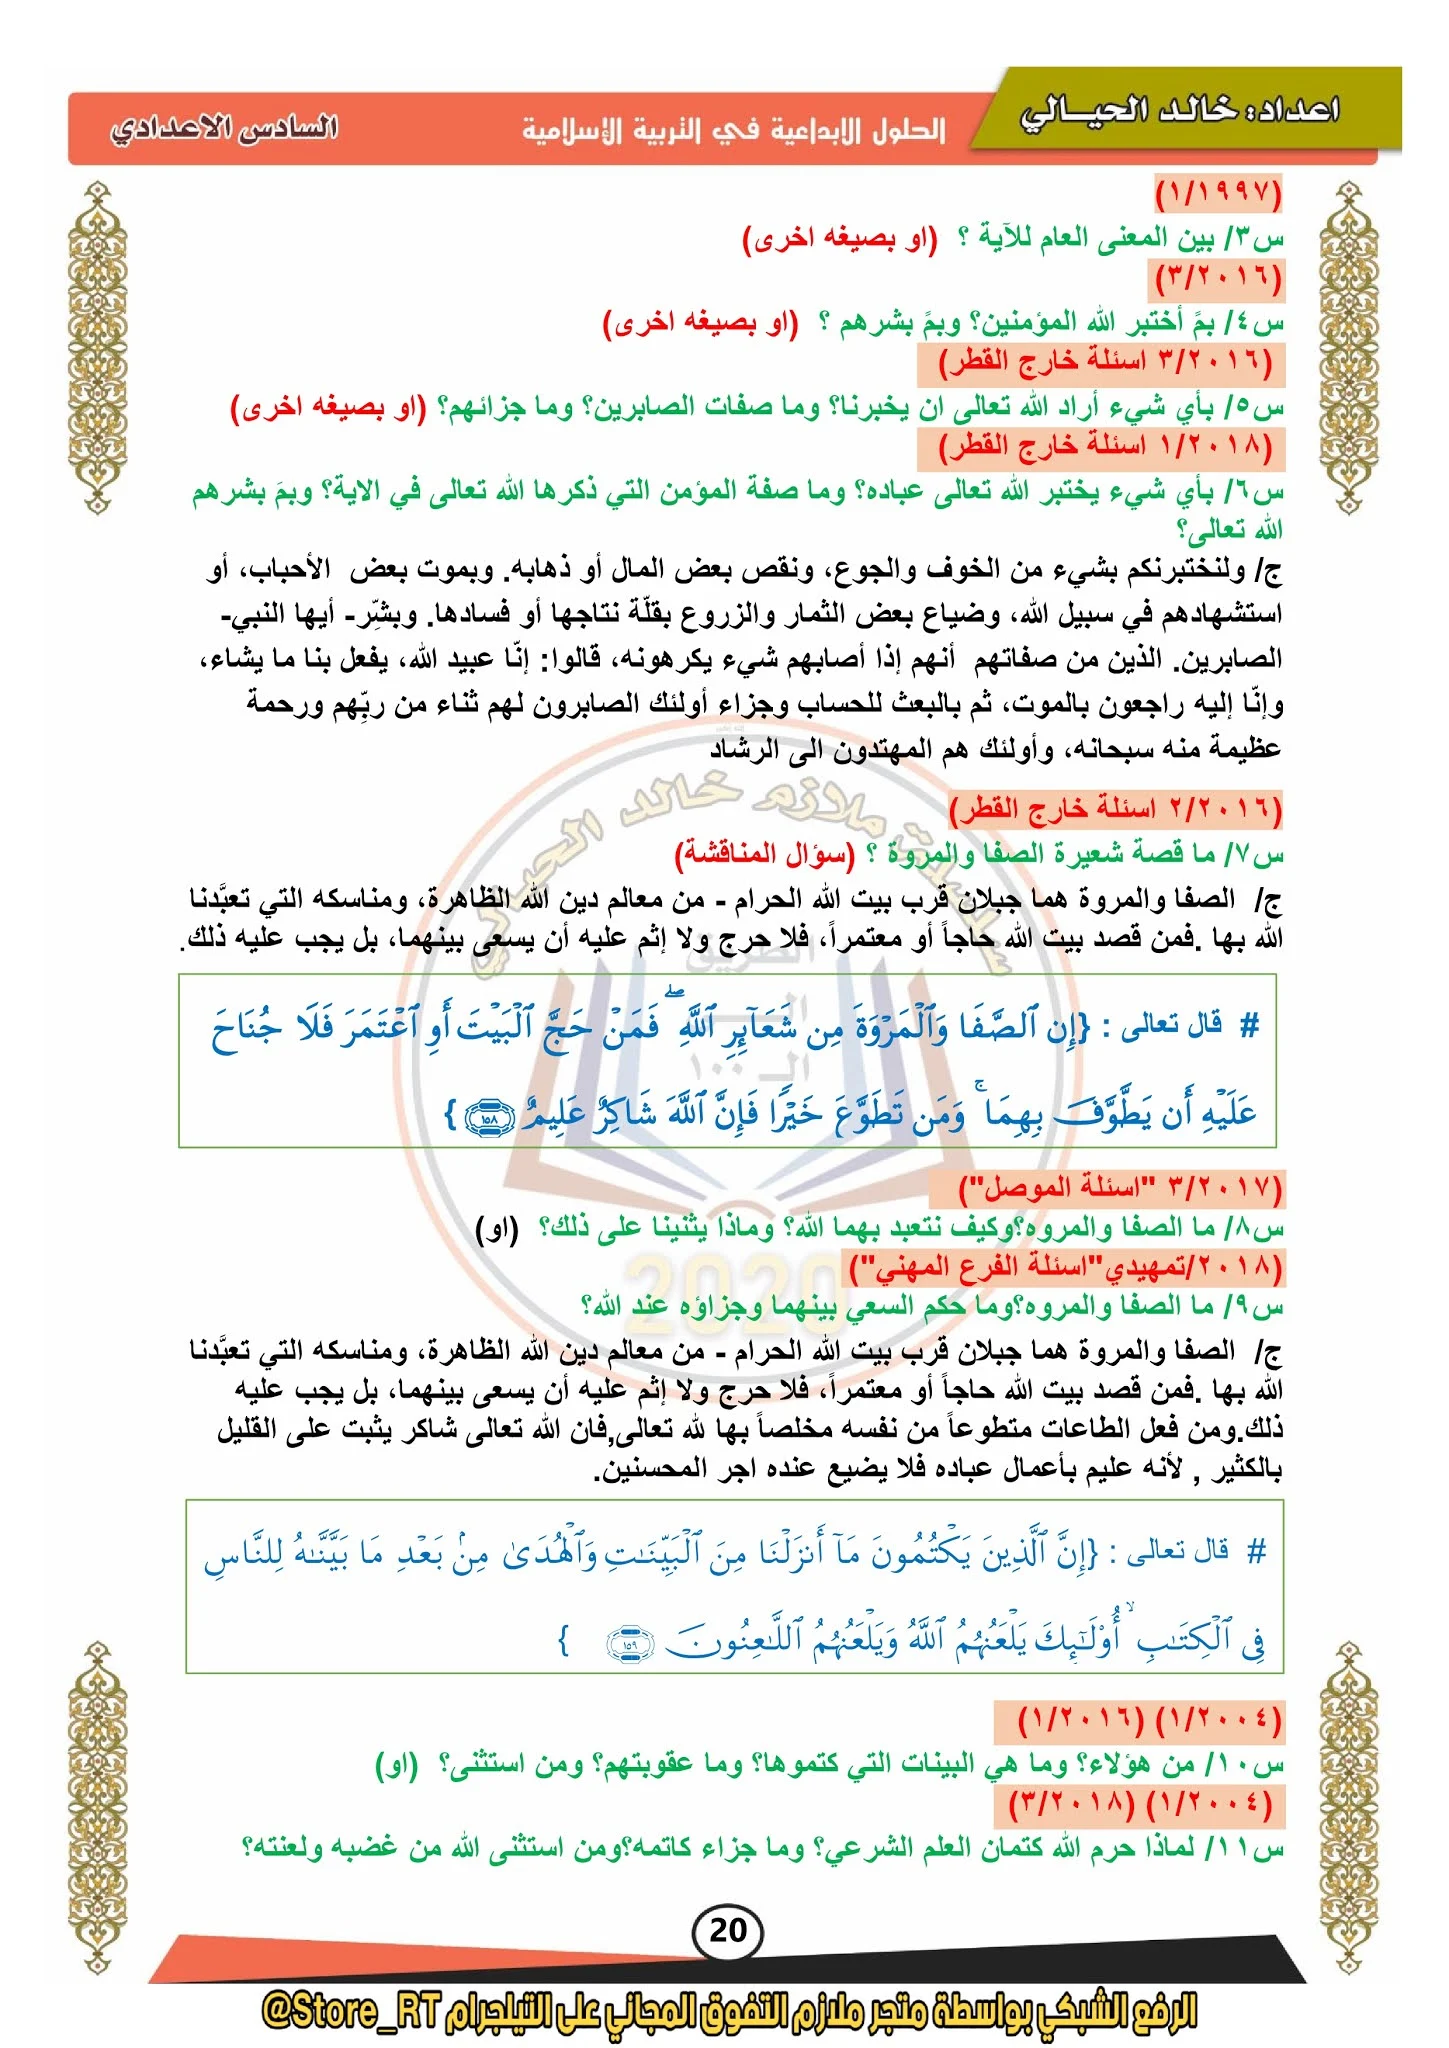 اعداد: خالد الحيـــالي
الحلول الابداعية في التربية الإسلامية
السادس الاعدادي
(١/١٩٩٧)
س٣/ بين المعنى العام للآية ؟ (او بصيغه اخرى)
(٣/٢٠١٦)
س٤/ بمً أختبر الله المؤمنين؟ وبمً بشرهم ؟ (او بصيغه اخرى)
(٣/٢٠١٦ اسئلة خارج القطر)
س٥/ بأي شيء أراد الله تعالى ان يخبرنا؟ وما صفات الصابرين؟ وما جزائهم؟ (او بصيغه اخرى)
(١/٢٠١٨ اسئلة خارج القطر)
س٦/ بأي شيء يختبر الله تعالى عباده؟ وما صفة المؤمن التي ذكرها الله تعالى في الاية؟ وبمَ بشرهم
الله تعالى؟
ج/ ولنختبرنكم بشيء من الخوف والجوع، ونقص بعض المال أو ذهابه. وبموت بعض الأحباب، أو
استشهادهم في سبيل الله، وضياع بعض الثمار والزروع بقلّة نتاجها أو فسادها. وبشِّر- أيها النبي-
الصابرين. الذين من صفاتهم أنهم إذا أصابهم شيء يكرهونه، قالوا: إنّا عبيد الله، يفعل بنا ما يشاء،
وإنّا إليه راجعون بالموت، ثم بالبعث للحساب وجزاء أولئك الصابرون لهم ثناء من ربِّهم ورحمة
عظيمة منه سبحانه، وأولئك هم المهتدون الى الرشاد
(٢/٢٠١٦ اسئلة خارج القطر)
س٧/ ما قصة شعيرة الصفا والمروة ؟ (سؤال المناقشة)
ج/ الصفا والمروة هما جبلان قرب بيت الله الحرام - من معالم دين الله الظاهرة، ومناسكه التي تعبَّدنا
الله بها .فمن قصد بيت الله حاجاً أو معتمراً، فلا حرج ولا إثم عليه أن يسعى بينهما، بل يجب عليه ذلك.
# قال تعالى : {إِن ٱلصَّفَا وَٱلْمَرْوَةَ مِن شَعَآئِرِ ٱللَّهِ ۖ فَمَنْ حَجَّ ٱلْبَيْتَ أَوِ ٱعْتَمَرَ فَلَا جُنَاحَ
عَلَيْهِ أَن يَطَّوَّفَ بِهِمَا ۚ وَمَن تَطَوَّعَ خَيْرًا فَإِنَّ ٱللَّهَ شَاكِرٌ عَلِيمٌ ١٥٨ }
(٣/٢٠١٧ "اسئلة الموصل")
س٨/ ما الصفا والمروه؟وكيف نتعبد بهما الله؟ وماذا يثنينا على ذلك؟ (او)
(٢٠١٨/تمهيدي"اسئلة الفرع المهني")
س٩/ ما الصفا والمروه؟وما حكم السعي بينهما وجزاؤه عند الله؟
ج/ الصفا والمروة هما جبلان قرب بيت الله الحرام - من معالم دين الله الظاهرة، ومناسكه التي تعبَّدنا
الله بها .فمن قصد بيت الله حاجاً أو معتمراً، فلا حرج ولا إثم عليه أن يسعى بينهما، بل يجب عليه
ذلك.ومن فعل الطاعات متطوعاً من نفسه مخلصاً بها لله تعالى,فان الله تعالى شاكر يثبت على القليل
بالكثير , لأنه عليم بأعمال عباده فلا يضيع عنده اجر المحسنين.
# قال تعالى : {إِنَّ ٱلَّذِينَ يَكْتُمُونَ مَآ أَنزَلْنَا مِنَ ٱلْبَيِّنَٰتِ وَٱلْهُدَىٰ مِنۢ بَعْدِ مَا بَيَّنَّٰهُ لِلنَّاسِ
فِى ٱلْكِتَٰبِ ۙ أُو۟لَٰٓئِكَ يَلْعَنُهُمُ ٱللَّهُ وَيَلْعَنُهُمُ ٱللَّٰعِنُونَ ١٥٩ }
(١/٢٠٠٤) (١/٢٠١٦)
س١٠/ من هؤلاء؟ وما هي البينات التي كتموها؟ وما عقوبتهم؟ ومن استثنى؟ (او)
(١/٢٠٠٤) (٣/٢٠١٨)
س١١/ لماذا حرم الله كتمان العلم الشرعي؟ وما جزاء كاتمه؟ومن استثنى الله من غضبه ولعنته؟
20
الرفع الشبكي بواسطة متجر ملازم التفوق المجاني على التيلجرام @Store_RT
سلسلة ملازم خالد الحيالي
الطريق
الــى
الــ ١٠٠
2020